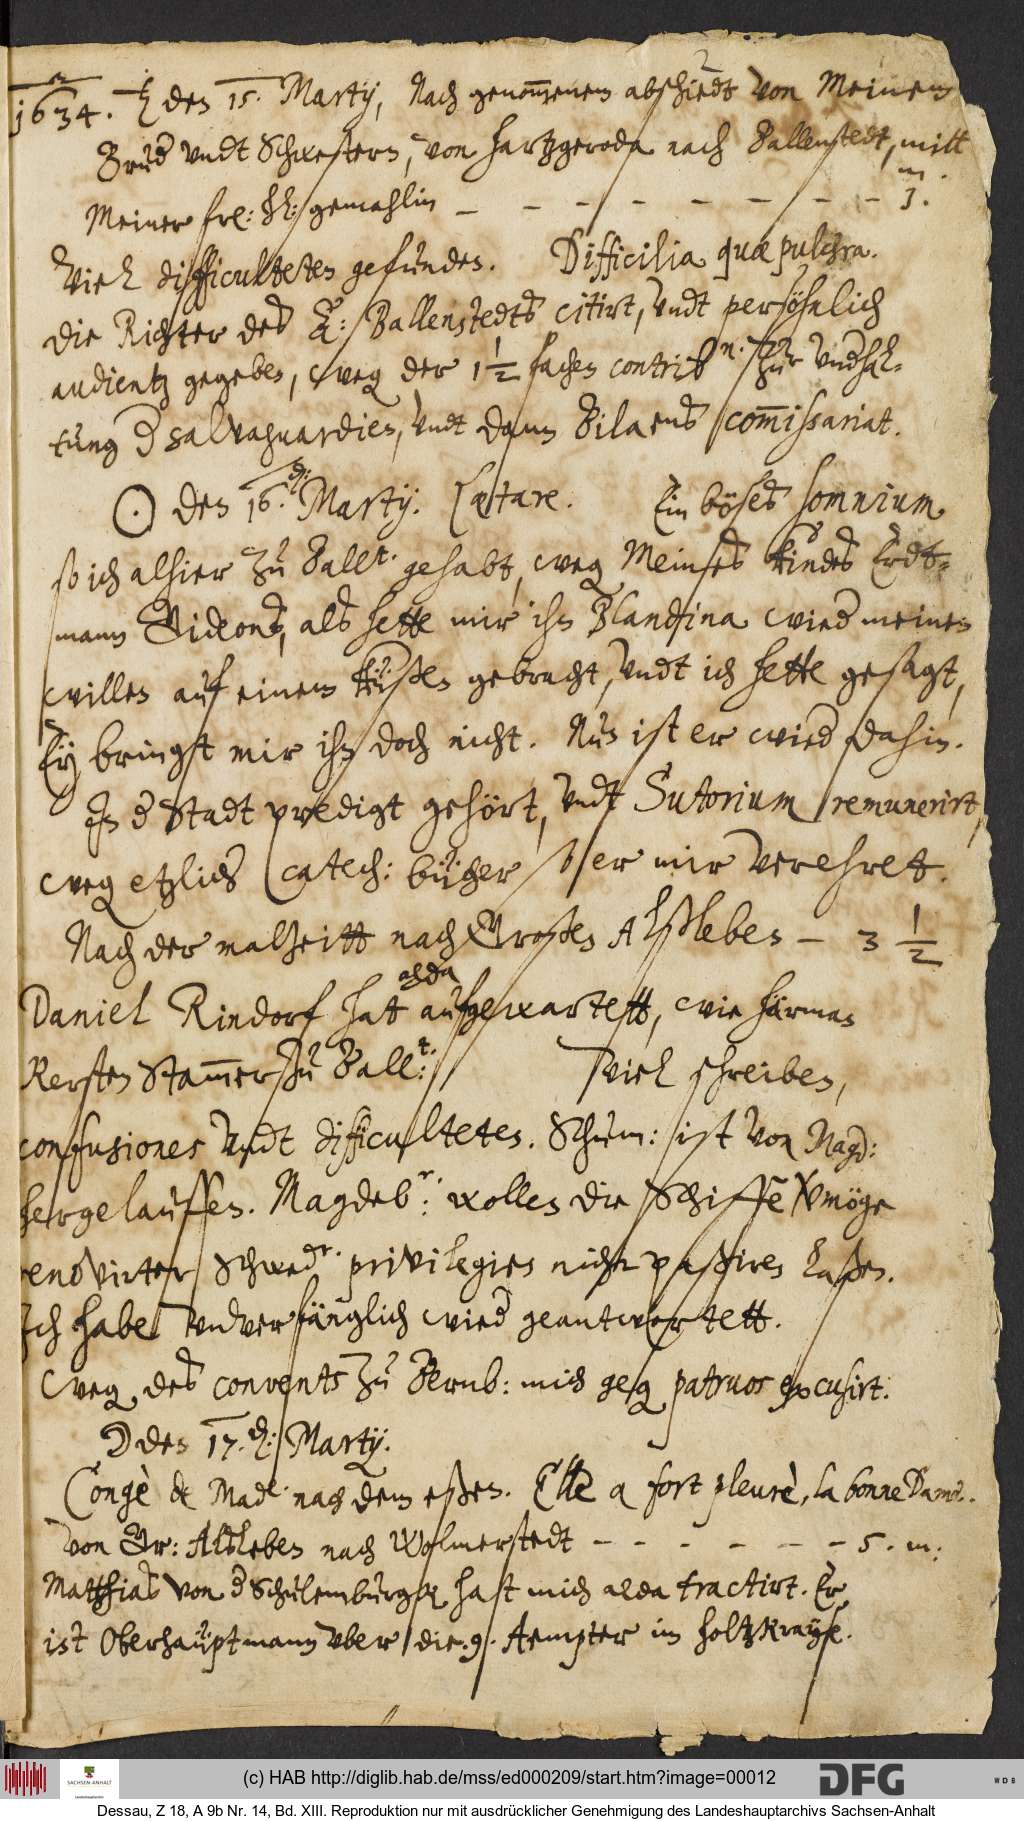 1634. ♄ den 15. Martij, Nach genom̅enem abschiedt von Meinem
Brud[er] undt Schwestern, von Hartzgeroda nach Ballenstedt, mitt
Meiner frl: hl: gemahlin – – – – – – – – 3. m.
Viel difficulteten gefunden. Difficilia quæ pulchra.
Die Richter des A: Ballenstedts citirt, undt persöhnlich
audientz gegeben, weg[en] der 1½ fachen contrib[utio]n. zur underhal-
tung d[er] salvaguardien, undt dann Bilaens com̅issariat.
☉ den 16. d: Martij. Lætare. Ein böses somnium
so ich alhier zu Ball[enstedt] gehabt, weg[en] Meines kindes Erdt-
mann Gideons, als hette mir ihn Blandina wied[er] meinen
willen auf einem küßen gebracht, undt ich hette gesagt,
Ey bringst mir ihn doch nicht. Nun ist er wied[er] dahin.
In d[er] Stadt predigt gehört, undt Sutorium remunerirt,
weg[en] etzlich[er] Catech: bücher so er mir verehret.
Nach der malzeitt nach Großen Alßleben – 3 ½
Daniel Rindorf hatt alda aufgewartett, wie Hårman
Kersten Stam̅er zu Ball[enstedt]: Viel schreiben,
confusiones undt difficulteten. Schum: ist von Magd:
hergelauffen. Magdeb[urge]r: wollen die Schiffe vermöge
renovirter Schwed[ische]r. privilegien nicht paßiren laßen.
Ich habe undverfänglich wied[er] geantwortett.
Weg[en] des convents zu Bernb: mich geg[en] patruos excusirt.
☽ den 17. d: Martij.
Congè de Mad[am]e. nach dem eßen. Elle a fort pleurè, la bonne Dame.
Von Gr: Alsleben nach Wolmerstedt – – – – – – 5. m:
Matthias von d[er] Schulemburgk hat mich alda tractirt. Er
ist Oberhauptmann uber die .9. Aempter im Holtzkrayse.
(c) HAB http://diglib.hab.de/mss/ed000209/start.htm?image=00012
SACHSEN-ANHALT
DFG
WDB
Dessau, Z 18, A 9b Nr. 14, Bd. XIII. Reproduktion nur mit ausdrücklicher Genehmigung des Landeshauptarchivs Sachsen-Anhalt